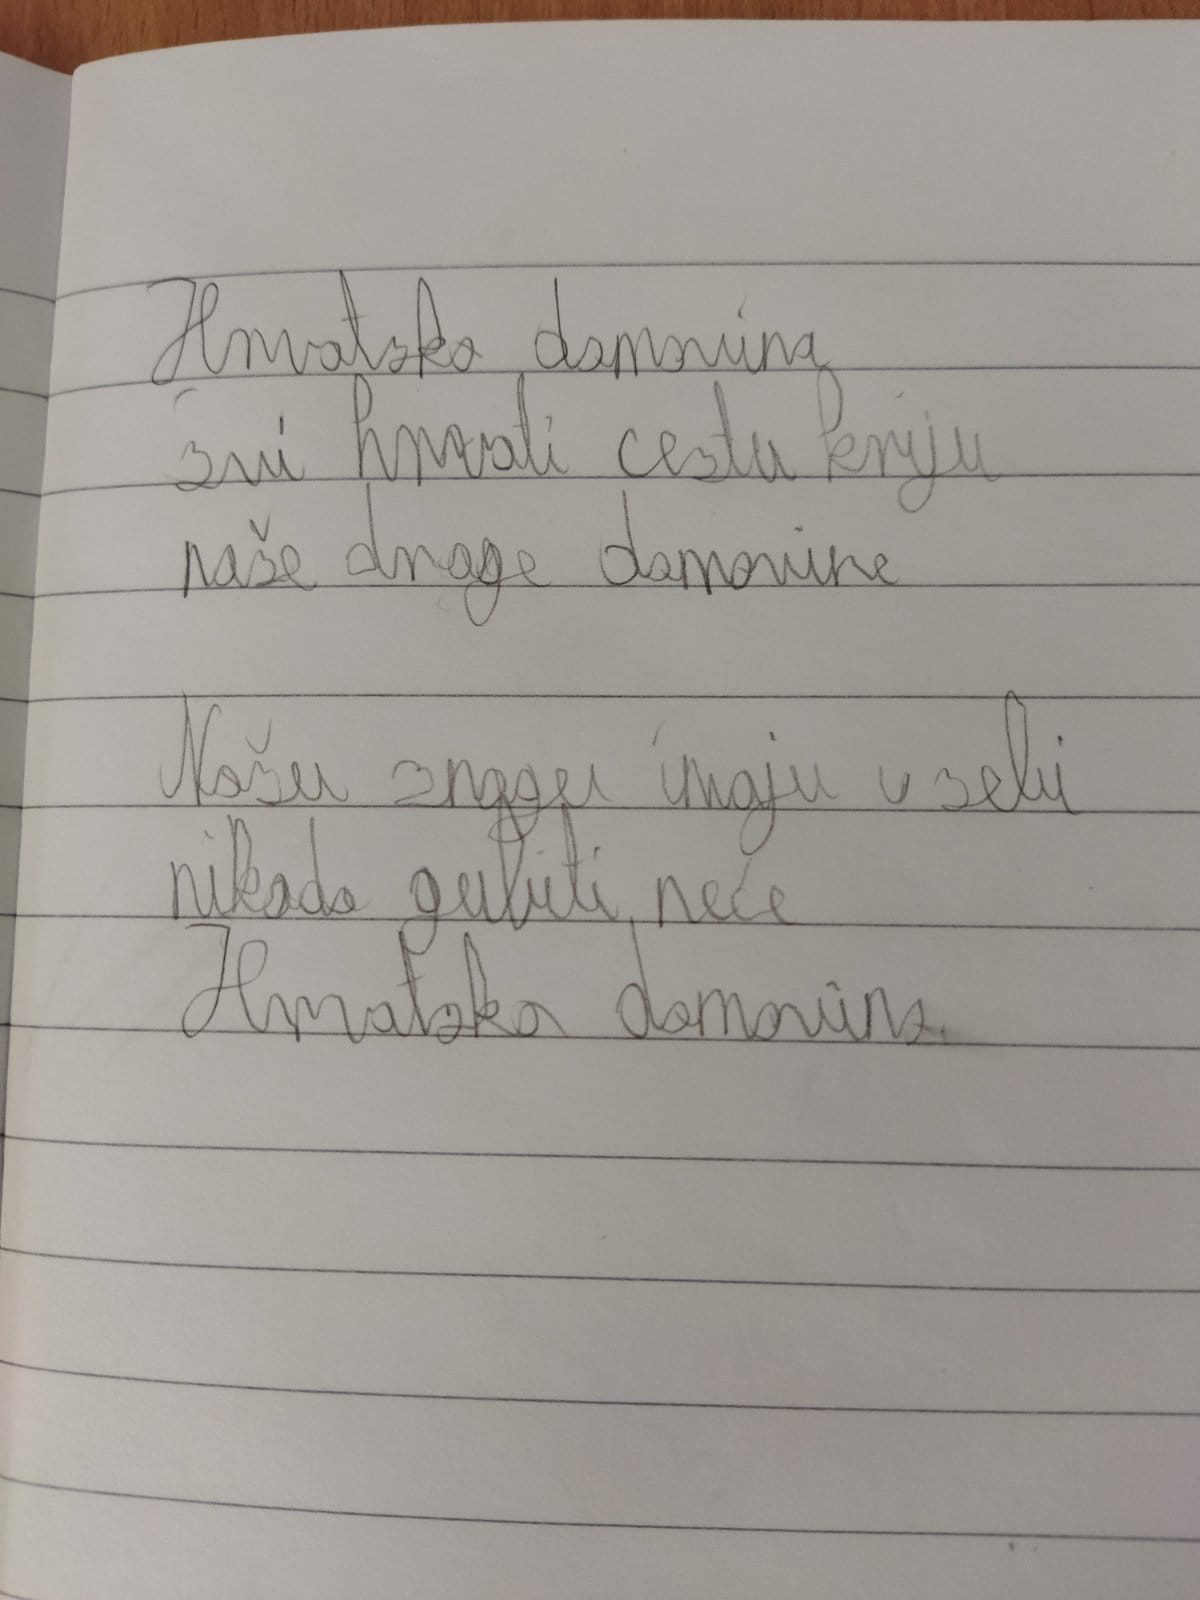 Hrvatska domovina
svi hrvati cestu kriju
naše drage domovine
Našu snagu imaju u sebi
nikada gubiti neće
Hrvatska domovina.